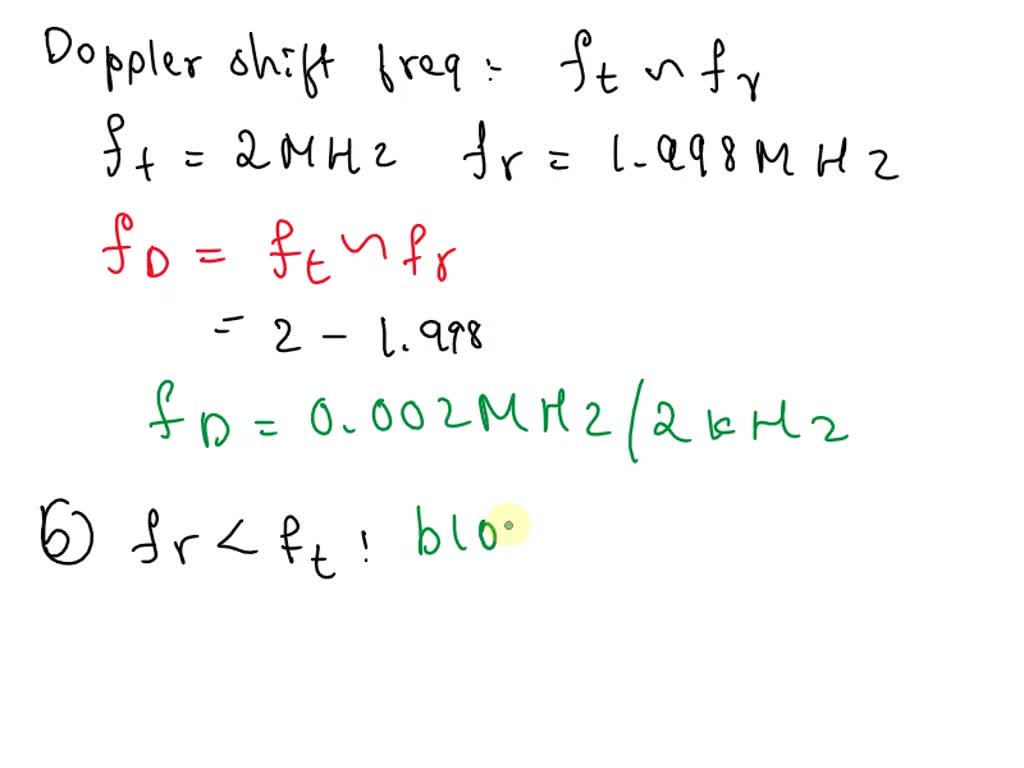 Doppler shift freq: ft ~ fr
ft = 2MHz fr = 1.998MHz
fD = ft ~ fr
= 2 - 1.998
fD = 0.002MHz/2kHz
b) fr < ft : blo